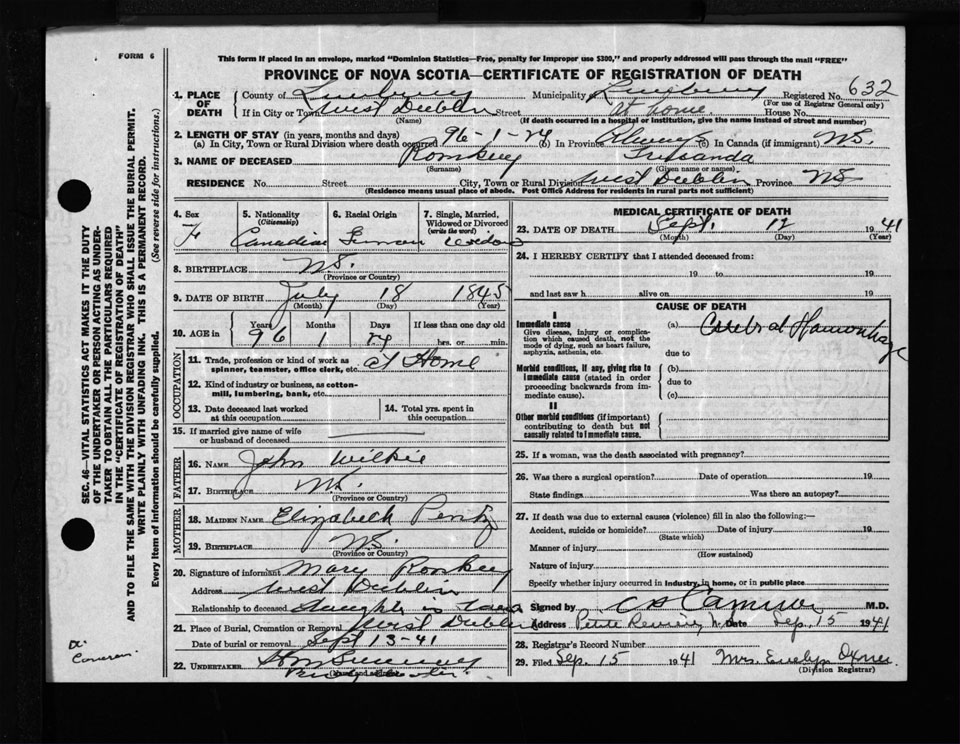 FORM 6
This form if placed in an envelope, marked "Dominion Statistics—Free, penalty for improper use $300," and properly addressed will pass through the mail "FREE"
PROVINCE OF NOVA SCOTIA—CERTIFICATE OF REGISTRATION OF DEATH
632
1. PLACE OF DEATH
County of Lunenburg Municipality Lunenburg Registered No.
(For use of Registrar General only)
If in City or Town West Dublin Street At home House No.
(Name) (If death occurred in a hospital or institution, give the name instead of street and number)
2. LENGTH OF STAY (in years, months and days)
(a) In City, Town or Rural Division where death occurred 96-1-24 (b) In Province Always (c) In Canada (if immigrant) NS.
3. NAME OF DECEASED Romkey
(Surname) (Given name or names)
RESIDENCE No. Street City, Town or Rural Division West Dublin Province NS
(Residence means usual place of abode. Post Office Address for residents in rural parts not sufficient)
4. Sex
F
5. Nationality
(Citizenship)
Canadian
6. Racial Origin
German
7. Single, Married, Widowed or Divorced
(write the word)
widow
8. BIRTHPLACE N.S.
(Province or Country)
9. DATE OF BIRTH July 18 1845
(Month) (Day) (Year)
10. AGE in
Years Months Days If less than one day old
96 1 24 hrs. or min.
OCCUPATION
11. Trade, profession or kind of work as spinner, teamster, office clerk, etc. at Home
12. Kind of industry or business, as cotton-mill, lumbering, bank, etc.
13. Date deceased last worked at this occupation
14. Total yrs. spent in this occupation
15. If married give name of wife or husband of deceased
FATHER
16. NAME John Wilkie
17. BIRTHPLACE N.S.
(Province or Country)
MOTHER
18. MAIDEN NAME Elizabeth Pentz
19. BIRTHPLACE N.S.
(Province or Country)
20. Signature of informant Mary Romkey
Address West Dublin
Relationship to deceased daughter in law
21. Place of Burial, Cremation or Removal West Dublin
Date of burial or removal Sept 13-41
22. UNDERTAKER
(Name and address)
MEDICAL CERTIFICATE OF DEATH
23. DATE OF DEATH Sept. 12 1941
(Month) (Day) (Year)
24. I HEREBY CERTIFY that I attended deceased from:
19 to 19
and last saw h alive on 19
CAUSE OF DEATH
I
Immediate cause
Give disease, injury or complication which caused death, not the mode of dying, such as heart failure, asphyxia, asthenia, etc.
(a) Cerebral Hemorrhage
due to
Morbid conditions, if any, giving rise to immediate cause (stated in order proceeding backwards from immediate cause).
(b)
due to
(c)
II
Other morbid conditions (if important) contributing to death but not causally related to immediate cause.
25. If a woman, was the death associated with pregnancy?
26. Was there a surgical operation? Date of operation 19
State findings Was there an autopsy?
27. If death was due to external causes (violence) fill in also the following:—
Accident, suicide or homicide? Date of injury 19
(State which)
Manner of injury
(How sustained)
Nature of injury
Specify whether injury occurred in industry, in home, or in public place
Signed by Cameron M.D.
Address Petite Riviere, N.S. Date Sep. 15 1941
28. Registrar's Record Number
29. Filed Sep. 15 1941 Mrs. Evelyn
(Division Registrar)
SEC. 46—VITAL STATISTICS ACT MAKES IT THE DUTY
OF THE UNDERTAKER OR PERSON ACTING AS UNDER-
TAKER TO OBTAIN ALL THE PARTICULARS REQUIRED
IN THE "CERTIFICATE OF REGISTRATION OF DEATH"
AND TO FILE THE SAME WITH THE DIVISION REGISTRAR WHO SHALL ISSUE THE BURIAL PERMIT.
WRITE PLAINLY WITH UNFADING INK. THIS IS A PERMANENT RECORD.
Every item of information should be carefully supplied. (See reverse side for instructions.)